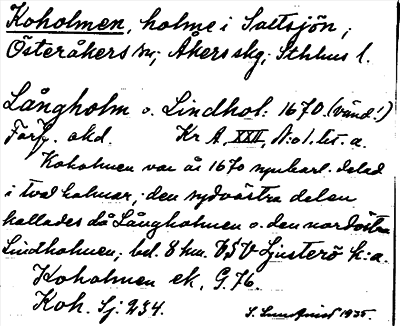 Koholmen, holme i Saltsjön;
Österåkers sn; Åkers skg; Sthlms l.
Långholm o. Lindhol: 1670. (vänd!)
Förf. okd. Kr A, XXII, N:o 1. lit. a.
Koholmen var år 1670 uppenbarl. delad
i två holmar; den sydvästra delen
kallades då Långholmen o. den nordöstra
Lindholmen; bel. 8 km. VSV Ljusterö k:a.
Koholmen ek. G. 76.
Koh. Sj: 234.
1935